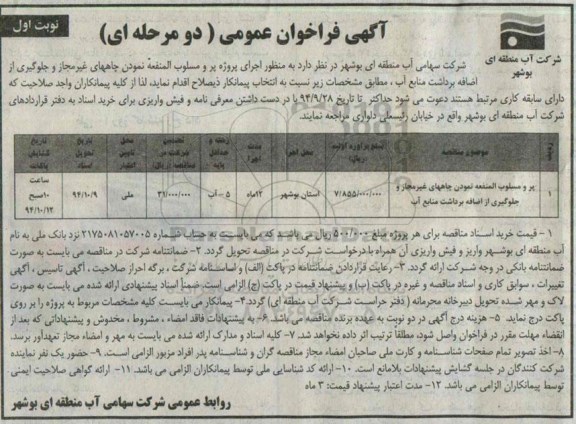 نوبت اول
آگهی فراخوان عمومی ( دو مرحله ای)
شرکت آب منطقه ای
بوشهر
شرکت سهامی آب منطقه ای بوشهر در نظر دارد به منظور اجرای پروژه پر و مسلوب المنفعه نمودن چاههای غیرمجاز و جلوگیری از
اضافه برداشت منابع آب ، مطابق مشخصات زیر نسبت به انتخاب پیمانکار ذیصلاح اقدام نماید، لذا از کلیه پیمانکاران واجد صلاحیت که
دارای سابقه کاری مرتبط هستند دعوت می شود حداکثر تا تاریخ ۹۴/۹/۲۸ با در دست داشتن معرفی نامه و فیش واریزی برای خرید اسناد به دفتر قراردادهای
شرکت آب منطقه ای بوشهر واقع در خیابان رئیسعلی دلواری مراجعه نمایند.
موضوع مناقصه
محل اجرا
مدت اجرا
رشته و حداقل پایه
محل تامین اعتبار
تاریخ تحویل اسناد
تاریخ گشایش پاکات
۱
پر و مسلوب المنفعه نمودن چاههای غیرمجاز و
جلوگیری از اضافه برداشت منابع آب
۷/۸۵۵/۰۰۰/۰۰۰
استان بوشهر
۱۲ماه
۵ - آب
۳۲/۰۰۰/۰۰۰
ملی
۹۴/۱۰/۹
ساعت
۱۰صبح
۹۴/۱۰/۱۲
۱ - قیمت خرید اسناد مناقصه برای هر پروژه مبلغ ۵۰۰/۰۰۰ ریال می باشند که می بایست به حساب شماره ۲۱۷۵۰۸۱۰۵۷۰۰۵ نزد بانک ملی به نام
آب منطقه ای بوشهر واریز و فیش واریزی آن همراه با درخواست شرکت در مناقصه تحویل گردد. ۲- ضمانتنامه شرکت در مناقصه می بایست به صورت
ضمانتنامه بانکی در وجه شرکت ارائه گردد. ۳- رعایت قراردادن ضمانتنامه در پاکت (الف) و اساسنامه شرکت ، برگه احراز صلاحیت ، آگهی تاسیس ، آگهی
تغییرات ، سوابق کاری و اسناد مناقصه و غیره در پاکت (ب) و پیشنهاد قیمت در پاکت (ج) الزامی است. ضمناً اسناد پیشنهادی ارائه شده می بایست به صورت
لاک و مهر شده تحویل دبیرخانه محرمانه ( دفتر حراست شرکت آب منطقه ای) گردد. ۴- پیمانکار می بایست کلیه مشخصات مربوط به پروژه را بر روی
پاکت درج نماید ۵- هزینه درج آگهی در دو نوبت به عهده برنده مناقصه می باشد. ۶- به پیشنهادات فاقد امضاء ، مشروط ، مخدوش و پیشنهاداتی که بعد از
انقضاء مهلت مقرر در فراخوان واصل شود، مطلقاً ترتیب اثر داده نخواهد شد. ۷- کلیه اسناد و مدارک ارائه شده می بایست به مهر و امضاء مجاز تعهدآور برسد.
۸- اخذ تصویر تمام صفحات شناسنامه و کارت ملی صاحبان امضاء مجاز مناقصه گران و شناسنامه پدر افراد مزبور الزامی است. ۹- حضور یک نفر نماینده
شرکت کنندگان در جلسه گشایش پیشنهادات بلامانع است. ۱۰- ارائه کد شناسایی ملی توسط پیمانکاران الزامی می باشد. ۱۱- ارائه گواهی صلاحیت ایمنی
توسط پیمانکاران الزامی می باشد. ۱۲- مدت اعتبار پیشنهاد قیمت: ۳ ماه
روابط عمومی شرکت سهامی آب منطقه ای بوشهر